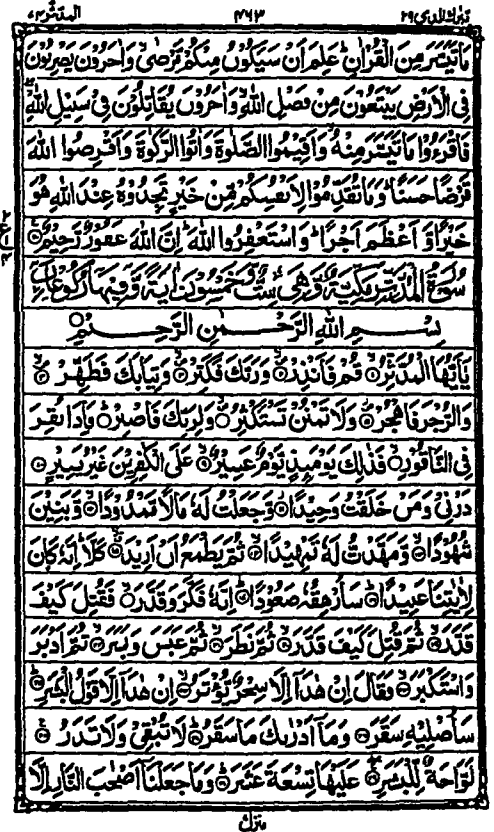 تبٰرك الذى ٢٩ ٤٦٣ المدثر ٧٤
مَا تَيَسَّرَ مِنَ الْقُرْاٰنِ ؕ عَلِمَ اَنْ سَيَكُوْنُ مِنْكُمْ مَّرْضٰى ۙ وَاٰخَرُوْنَ يَضْرِبُوْنَ
فِى الْاَرْضِ يَبْتَغُوْنَ مِنْ فَضْلِ اللّٰهِ ۙ وَاٰخَرُوْنَ يُقَاتِلُوْنَ فِىْ سَبِيْلِ اللّٰهِ ۖ
فَاقْرَءُوْا مَا تَيَسَّرَ مِنْهُ ۙ وَاَقِيْمُوا الصَّلٰوةَ وَاٰتُوا الزَّكٰوةَ وَاَقْرِضُوا اللّٰهَ
قَرْضًا حَسَنًا ؕ وَمَا تُقَدِّمُوْا لِاَنْفُسِكُمْ مِّنْ خَيْرٍ تَجِدُوْهُ عِنْدَ اللّٰهِ هُوَ
خَيْرًا وَّ اَعْظَمَ اَجْرًا ؕ وَاسْتَغْفِرُوا اللّٰهَ ؕ اِنَّ اللّٰهَ غَفُوْرٌ رَّحِيْمٌ
سُوْرَةُ الْمُدَّثِّرِ مَكِّيَّةٌ وَّهِىَ سِتٌّ وَّخَمْسُوْنَ اٰيَةً وَّفِيْهَا رُكُوْعَانِ
بِسْمِ اللّٰهِ الرَّحْمٰنِ الرَّحِيْمِ
يٰۤاَيُّهَا الْمُدَّثِّرُ ۙ قُمْ فَاَنْذِرْ ۙ وَرَبَّكَ فَكَبِّرْ ۙ وَثِيَابَكَ فَطَهِّرْ ۙ
وَالرُّجْزَ فَاهْجُرْ ۙ وَلَا تَمْنُنْ تَسْتَكْثِرُ ۙ وَلِرَبِّكَ فَاصْبِرْ ؕ فَاِذَا نُقِرَ
فِى النَّاقُوْرِ ۙ فَذٰلِكَ يَوْمَئِذٍ يَّوْمٌ عَسِيْرٌ ۙ عَلَى الْكٰفِرِيْنَ غَيْرُ يَسِيْرٍ
ذَرْنِىْ وَمَنْ خَلَقْتُ وَحِيْدًا ۙ وَّجَعَلْتُ لَهٗ مَالًا مَّمْدُوْدًا ۙ وَّبَنِيْنَ
شُهُوْدًا ۙ وَّمَهَّدْتُّ لَهٗ تَمْهِيْدًا ۙ ثُمَّ يَطْمَعُ اَنْ اَزِيْدَ ۙ كَلَّا ؕ اِنَّهٗ كَانَ
لِاٰيٰتِنَا عَنِيْدًا ؕ سَاُرْهِقُهٗ صَعُوْدًا ؕ اِنَّهٗ فَكَّرَ وَقَدَّرَ ۙ فَقُتِلَ كَيْفَ
قَدَّرَ ۙ ثُمَّ قُتِلَ كَيْفَ قَدَّرَ ۙ ثُمَّ نَظَرَ ۙ ثُمَّ عَبَسَ وَبَسَرَ ۙ ثُمَّ اَدْبَرَ
وَاسْتَكْبَرَ ۙ فَقَالَ اِنْ هٰذَاۤ اِلَّا سِحْرٌ يُّؤْثَرُ ۙ اِنْ هٰذَاۤ اِلَّا قَوْلُ الْبَشَرِ ؕ
سَاُصْلِيْهِ سَقَرَ وَمَاۤ اَدْرٰىكَ مَا سَقَرُ ؕ لَا تُبْقِىْ وَلَا تَذَرُ
لَوَّاحَةٌ لِّلْبَشَرِ ۖ عَلَيْهَا تِسْعَةَ عَشَرَ ؕ وَمَا جَعَلْنَاۤ اَصْحٰبَ النَّارِ اِلَّا
منزل